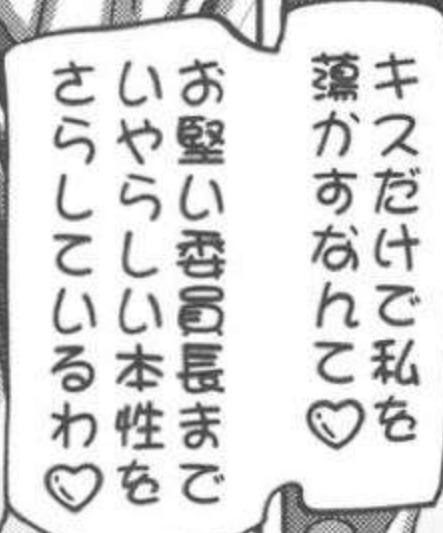 キスだけで私を
蕩かすなんて♡
お堅い委員長まで
いやらしい本性を
さらしているわ♡